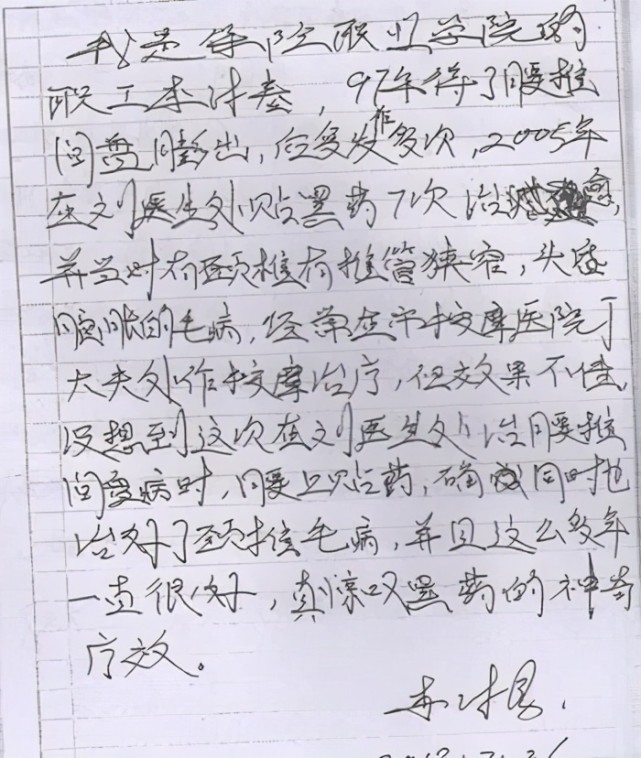 我是学院职业学院的
职工李，97年得了腰椎
间盘膨出，反复发作多次，2005年
在刘医生处贴黑药7次治愈，
并当时有颈椎有椎管狭窄，头
脑胀的毛病，经常在市按摩医院丁
大夫处作按摩治疗，但效果不佳，
没想到这次在刘医生处治腰椎
间盘病时，腰上贴药，确同时也
治好了颈椎毛病，并且这么多年
一直很好，真惊叹黑药的神奇
疗效。